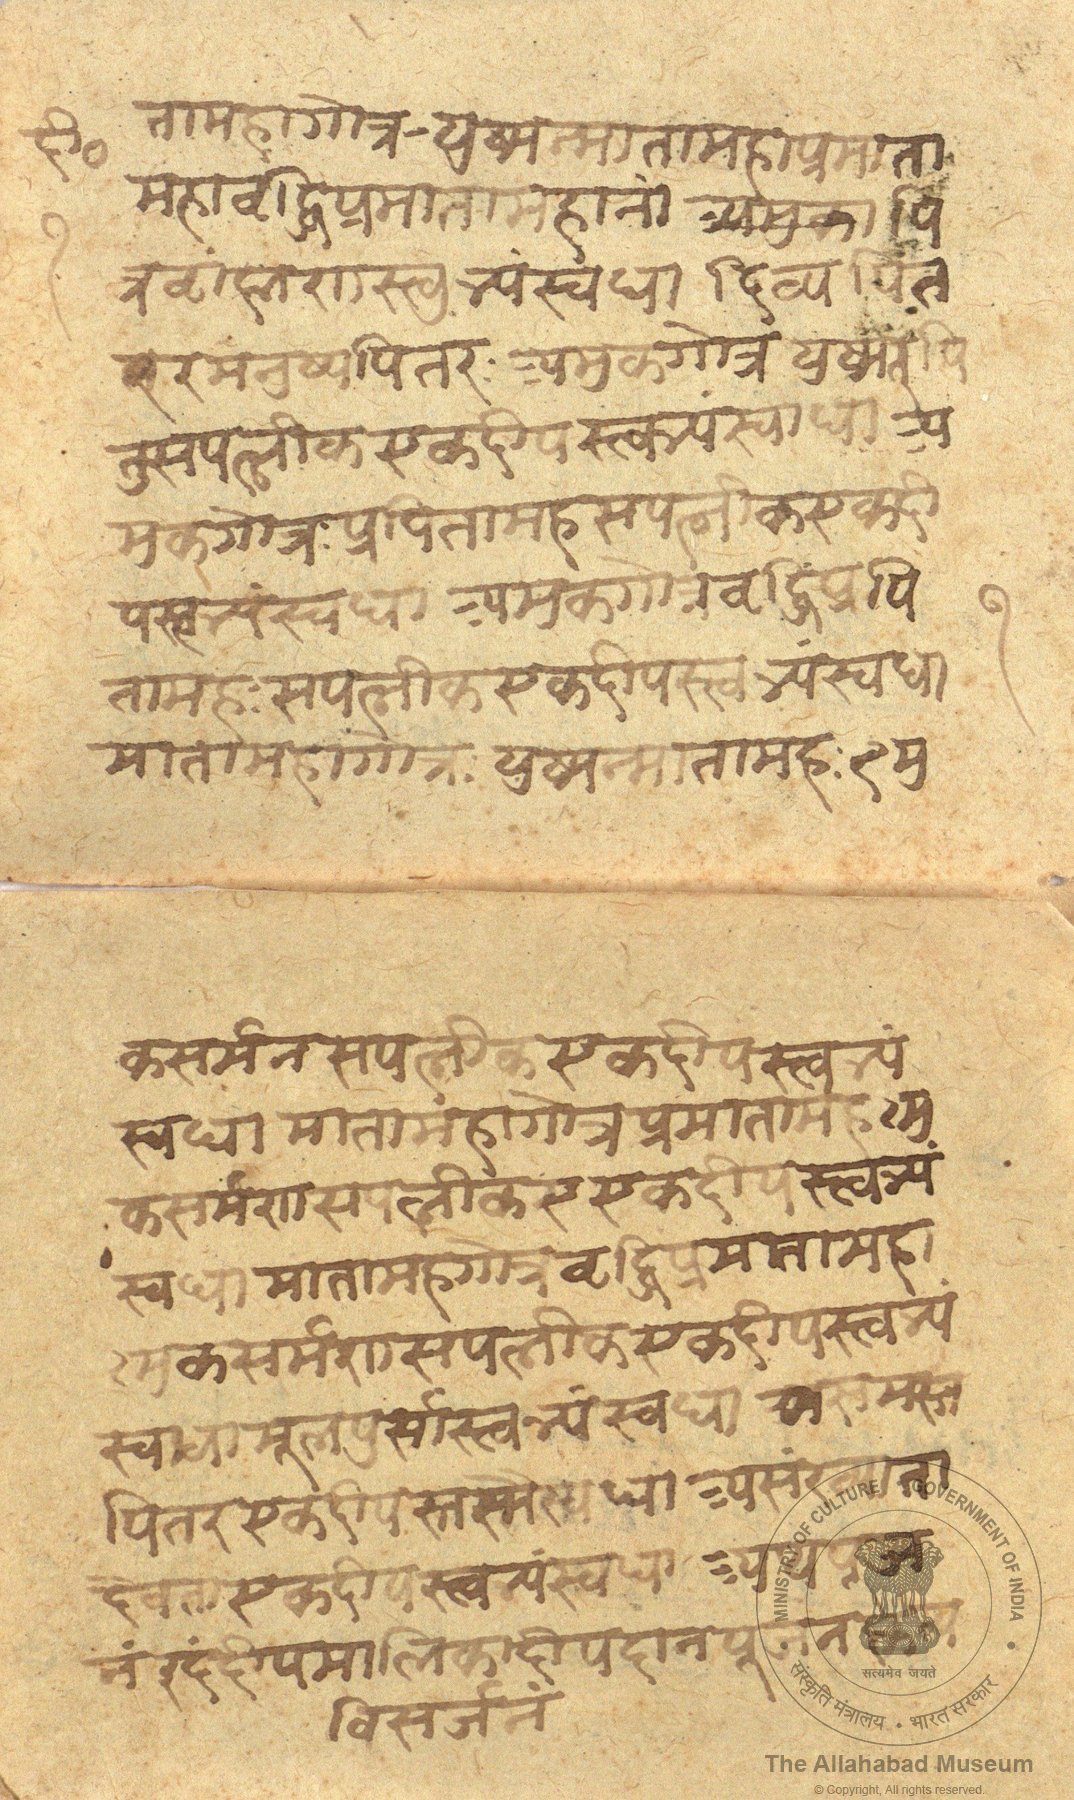 दी०
तामहागोत्र-युष्मन्मातामहाप्रमाता
महावृद्धिप्रमातामहानां अमुका पि
१
स्वधा दिव्य पित
मनुष्यपितर: अमुकगोत्रं
तुसपत्नीकएकदीपस्त्वन्यंस्वाधा अ
मुकगोत्र:प्रपितामहसपत्नीकएकदी
पस्त्वन्यंस्वधा अमुकगोत्रवृद्धिप्रपि
१
तामह:सपत्नीकएकदीपस्त्वन्यंस्वधा
मातामहागोत्र: युष्मन्मातामह:
कसर्मन सपत्नीकएकदीपस्त्वन्यं
स्वधा मातामंहागोत्र प्रमातामह
कसर्मणसपत्नीक एकदीपस्त्वन्यं
स्वधा मातामहगोत्र वृद्धिप्रमातामहा
कसर्मणसपत्नीकएकदीपस्त्वन्यं
स्वधा
पितरएकदीप
देवताएकदीपस्त्वन्यंस्वधा
दीपमालिकादीपदानपूजन
विसर्जनं
MINISTRY OF CULTURE GOVERNMENT OF INDIA
सत्यमेव जयते
संस्कृति मंत्रालय • भारत सरकार
The Allahabad Museum
© Copyright, All rights reserved.